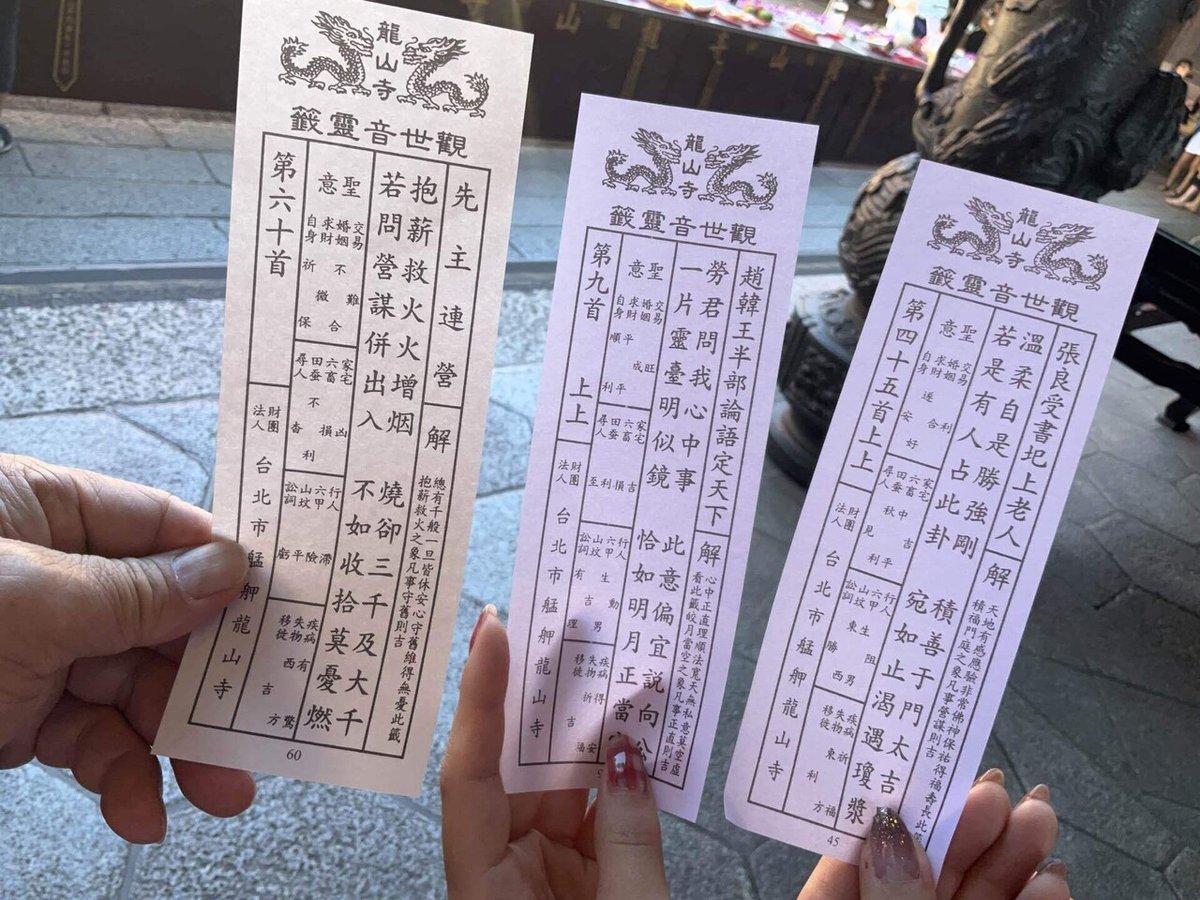 龍山寺
觀世音靈籤
先主連營
解
總有千般一旦皆休安心守舊維得無憂此籤
抱薪救火之象凡事守舊則吉
抱薪救火火增烟 燒卻三千及大千
若問營謀併出入 不如收拾莫憂燃
聖意
交易 難
婚姻 不合
求財 微
自身 祈保
家宅 凶
六畜 損
田蚕 不利
尋人 杳
行人 滯
六甲 險
山坟 平
訟詞 虧
疾病 有驚
失物 西方
移徙 吉
第六十首
財團法人 台北市艋舺龍山寺
60
龍山寺
觀世音靈籤
趙韓王半部論語定天下
解
心中正直理順法寬天無私意莫空虛
看此籤皎月當空之象凡事正直則吉
勞君問我心中事 此意偏宜説向公
一片靈臺明似鏡 恰如明月正當
聖意
交易 旺
婚姻 成
求財 平平
自身 順利
家宅 吉
六畜 損
田蚕 利
尋人 至
行人 動
六甲 生男
山坟 吉
訟詞 有理
疾病
失物 得
移徙 吉
第九首 上上
財團法人 台北市艋舺龍山寺
龍山寺
觀世音靈籤
張良受書圯上老人
解
天地有感應驗非常佛神保祐得福壽長此
積福門庭之象凡事營謀則吉
溫柔自是勝強剛 積善于門太吉
若是有人占此卦 宛如止渴遇瓊漿
聖意
交易 利
婚姻 合
求財 遂
自身 安好
家宅 吉
六畜 中平
田蚕 秋利
尋人 見
行人 阻
六甲 生男
山坟 東西
訟詞 勝
疾病 祈福
失物 東方
移徙 利
第四十五首上上
財團法人 台北市艋舺龍山寺
45